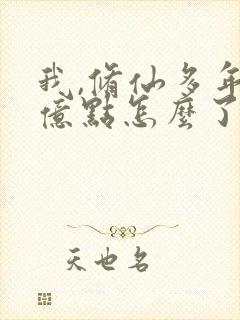 我,脩仙多年
億點怎麼了
天也名